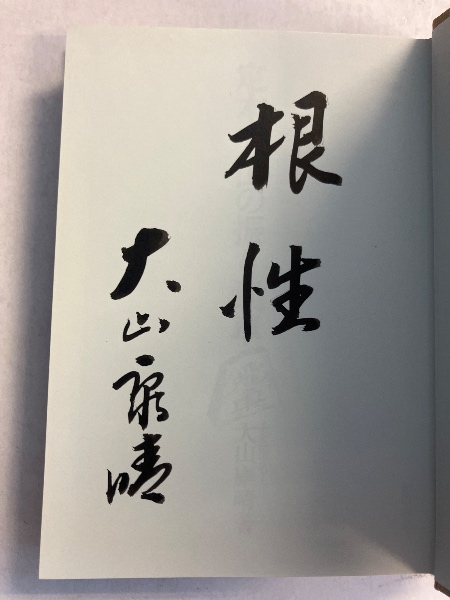 根性
大山康晴